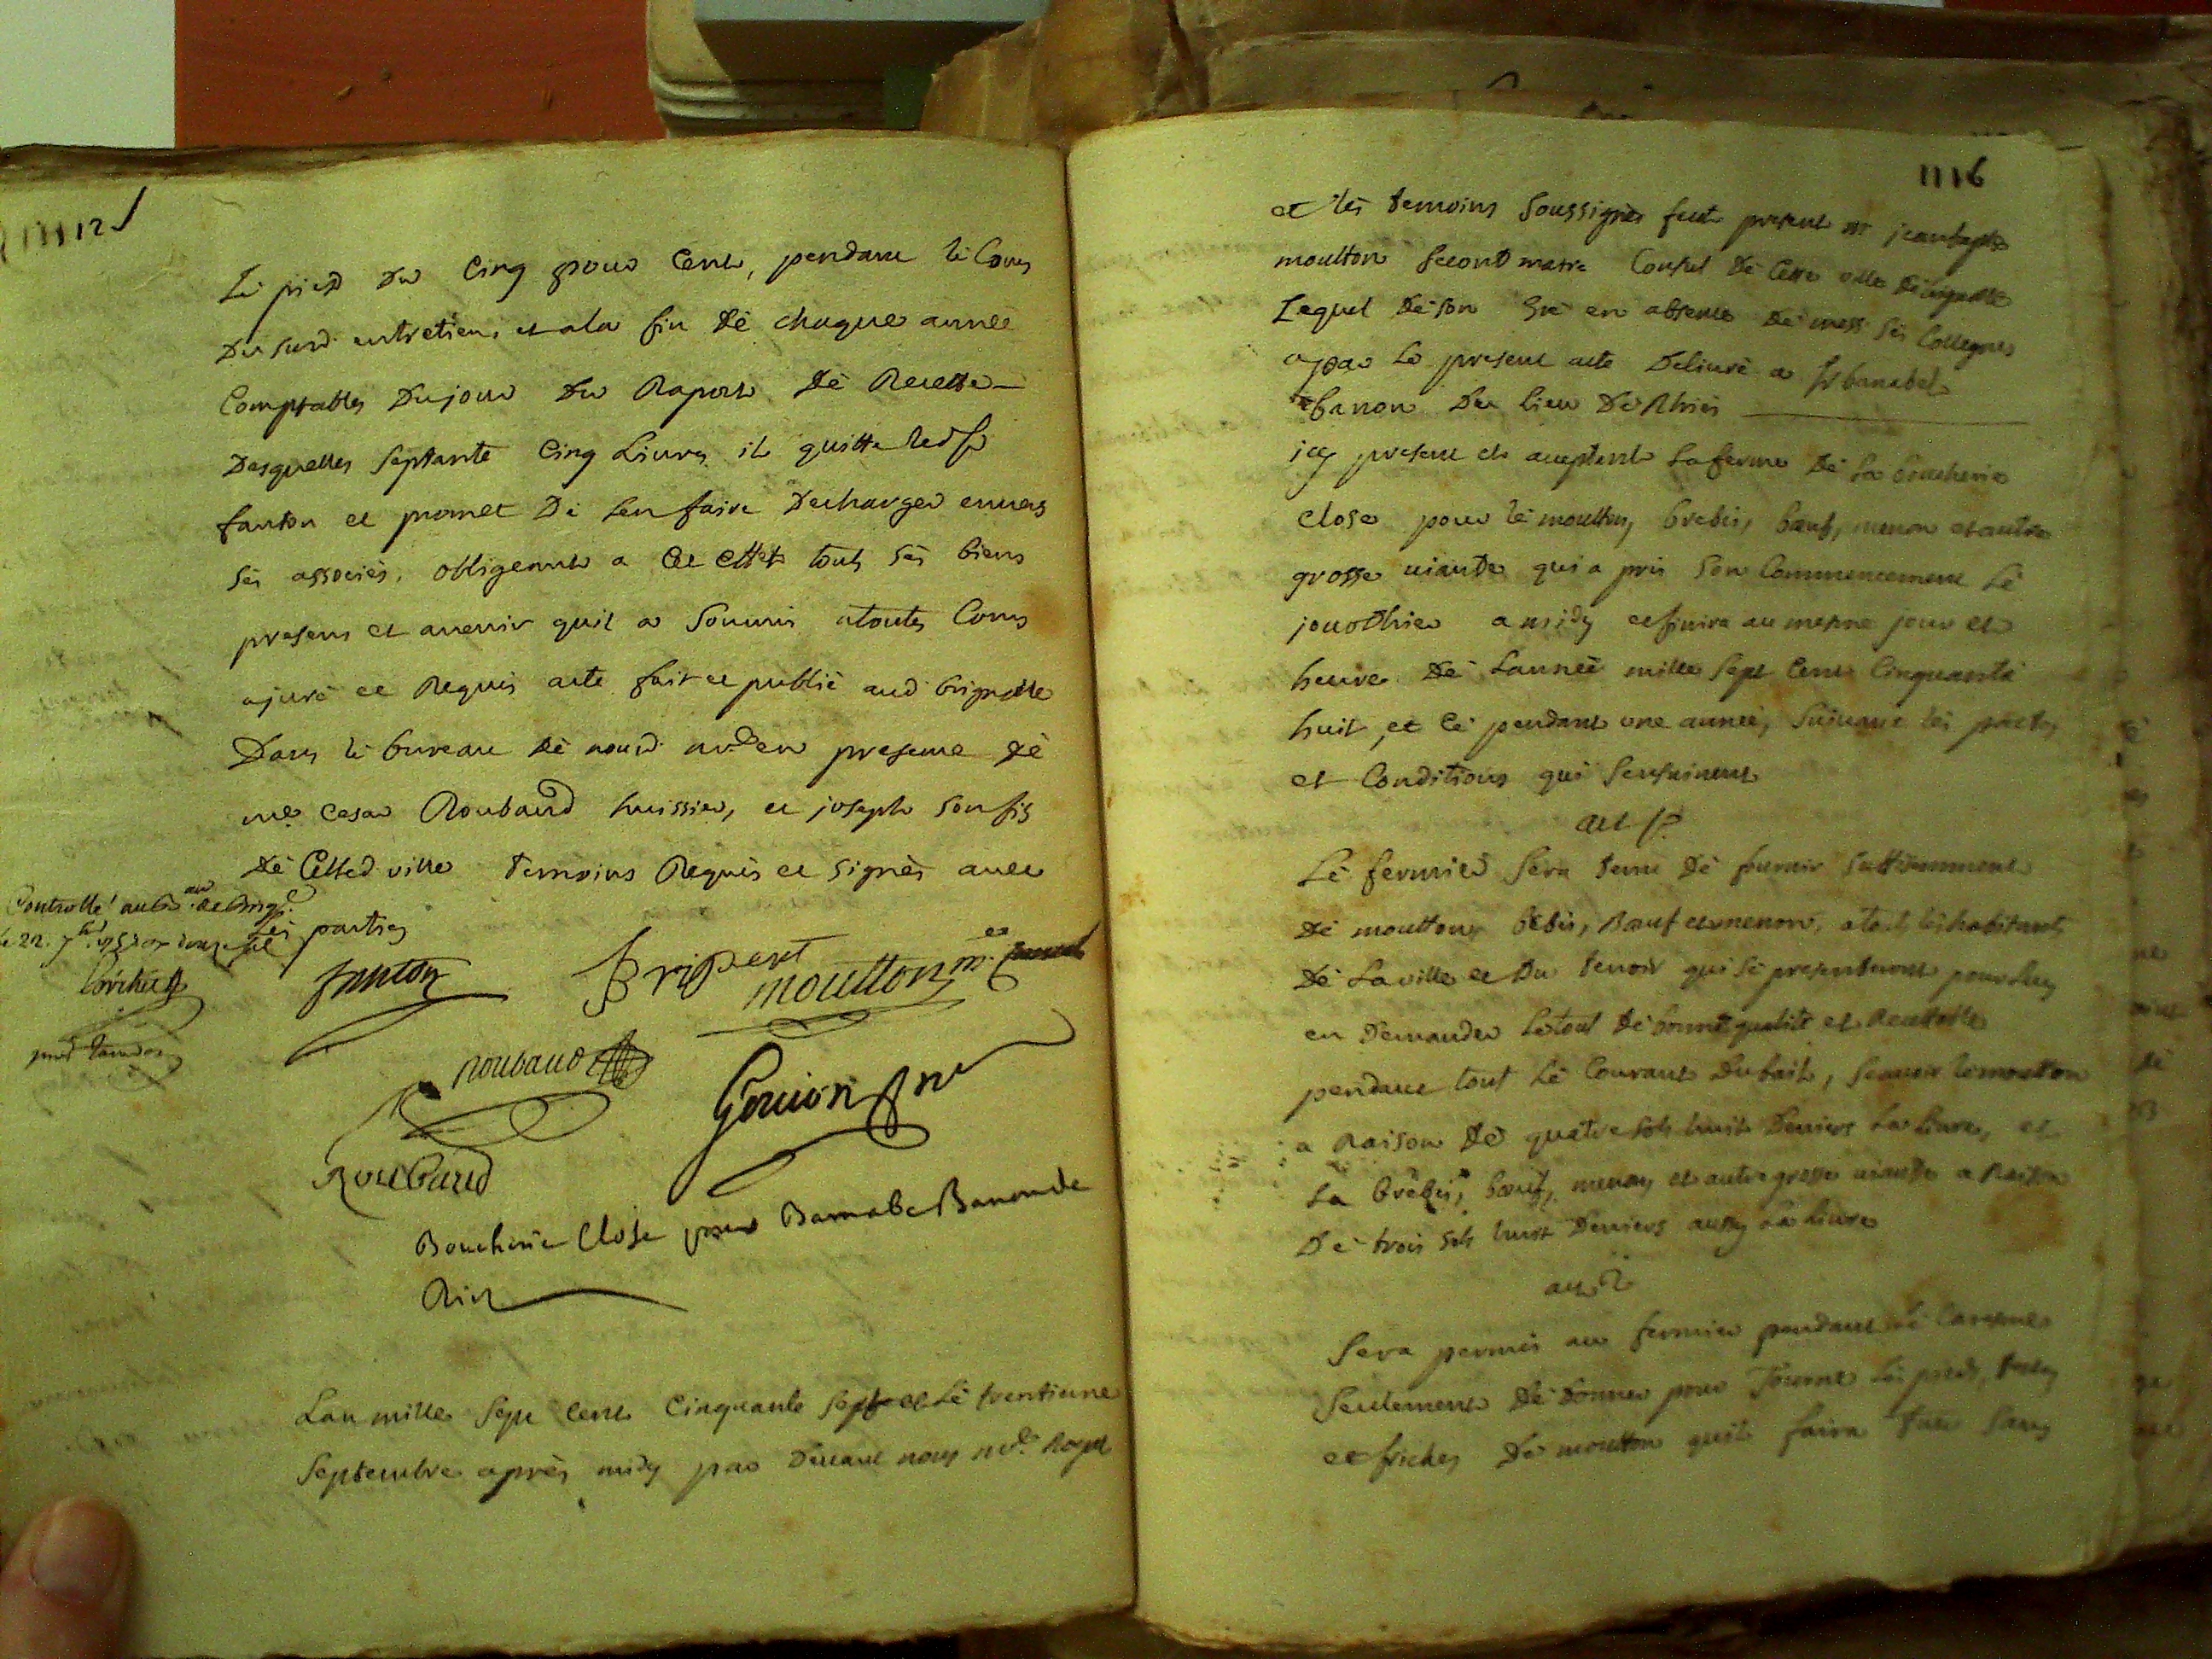 Le pied du Cinq pour Cent, pendant le Cours
Du Susd. entretien, et ala fin dè chaque année
Comptables Dujour Du Raport dè Recette
Desquelles Septante Cinq Livres il quitte led Sr
fanton et promet De len faire Decharger envers
Sès associès, obligeant a Cet Effet touts Sès biens
presens et avenir quil a Soumis atoutes Cours
ajuré et Requis acte fait et publié aud brignolle
Dans le bureau dè nousd. nore en presence dè
me. Cesar Roubaud huissier, et joseph Son fils
dè Cetted ville temoins Requis et Signès avec
Lès parties
Controllé au Bau. de Brigs.
le 22. 7bre
fanton
Bripert
moutton m.
Roubaud
Gouion
Roubaud
Boucherie Close pour Barnabe Banon de
Ries
Lan mille Sept Cent Cinquante Sept et Lè trentiune
Septembre après midy par Devant nous nore. Royal
1116
et lès temoins Soussignès feut present m jeanbaptte
moutton Second maire Consul dè Cette ville dè brignolle
Lequel dè Son Gré en absence dè mess Sès Collegues
apar Le present acte Delivré a Sr barnabé
banon Du lieu Dè Rhiès
icy present et aceptant La ferme dè La boucherie
close pour lè moutton, brebis, bœuf, menon et autre
grosse viande qui a pris Son Commencement Lè
jourdhier a midy et finira au mesme jour et
heure dè Lannèe mille Sept Cent Cinquante
huit, et Cè pendant une année, Suivant lès pactes
et Conditions qui Sensuivent
art 1er
Lè fermier Sera tenu dè fournir Suffisamment
dè moutton, brebis, Bœuf et menon, a touts lès habitants
dè La ville et Du teroir qui Sè presenteront pour luy
en Demander Letout dè bonne qualité et Recettable
pendant tout Lè Courant Dubail, Scavoir le moutton
a Raison dè quatre Sols huit Deniers La Livre, et
La brebis, bœuf, menon et autre grosse viande a Raison
Dè trois Sols huit Deniers aussy La Livre
art 2
Sera permis au fermier pendant Lè Caresme
Seulement dè donner pour Tourne Lès pieds, testes
et friches dè moutton quil faira tuer Sans